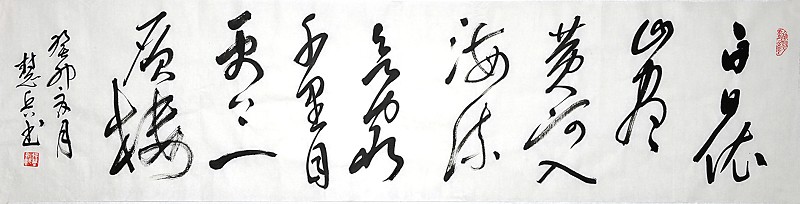 白日依
山尽
黄河入
海流
欲穷
千里目
更上一
层楼
癸卯亥月
慧兵书